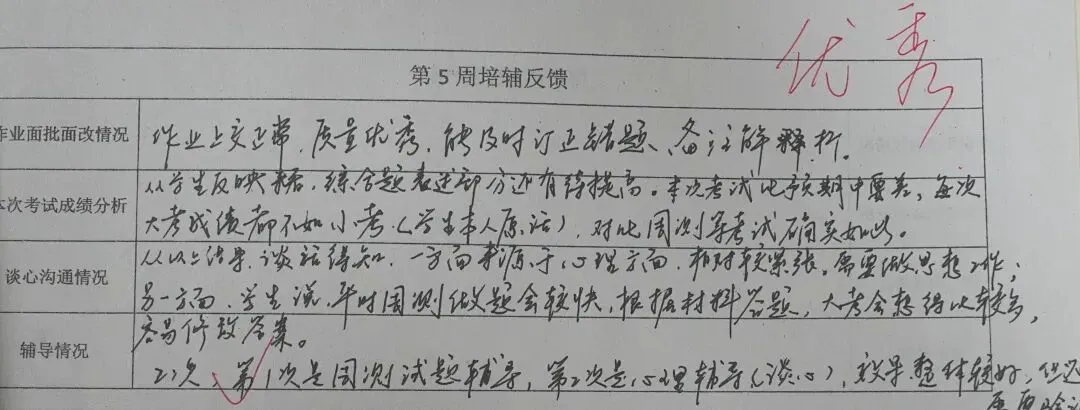 优秀
第5周培辅反馈
作业面批面改情况
作业上交正常,质量优秀,能及时订正错题、备注解释析。
本次考试成绩分析
从学生反映来看,综合题表述部分还有待提高。本次考试比预期中要差,每次
大考成绩都不如小考(学生本人原话),对比周测等考试确实如此。
谈心沟通情况
从以上结果,谈话得知,一方面来源于心理方面,相对较紧张,需要做思想工作;
另一方面,学生说,平时周测做题会较快,根据材料答题,大考会想得比较多,
容易修改答案。
辅导情况
2次,第1次是周测试题辅导,第2次是心理辅导(谈心),效果整体较好,但还